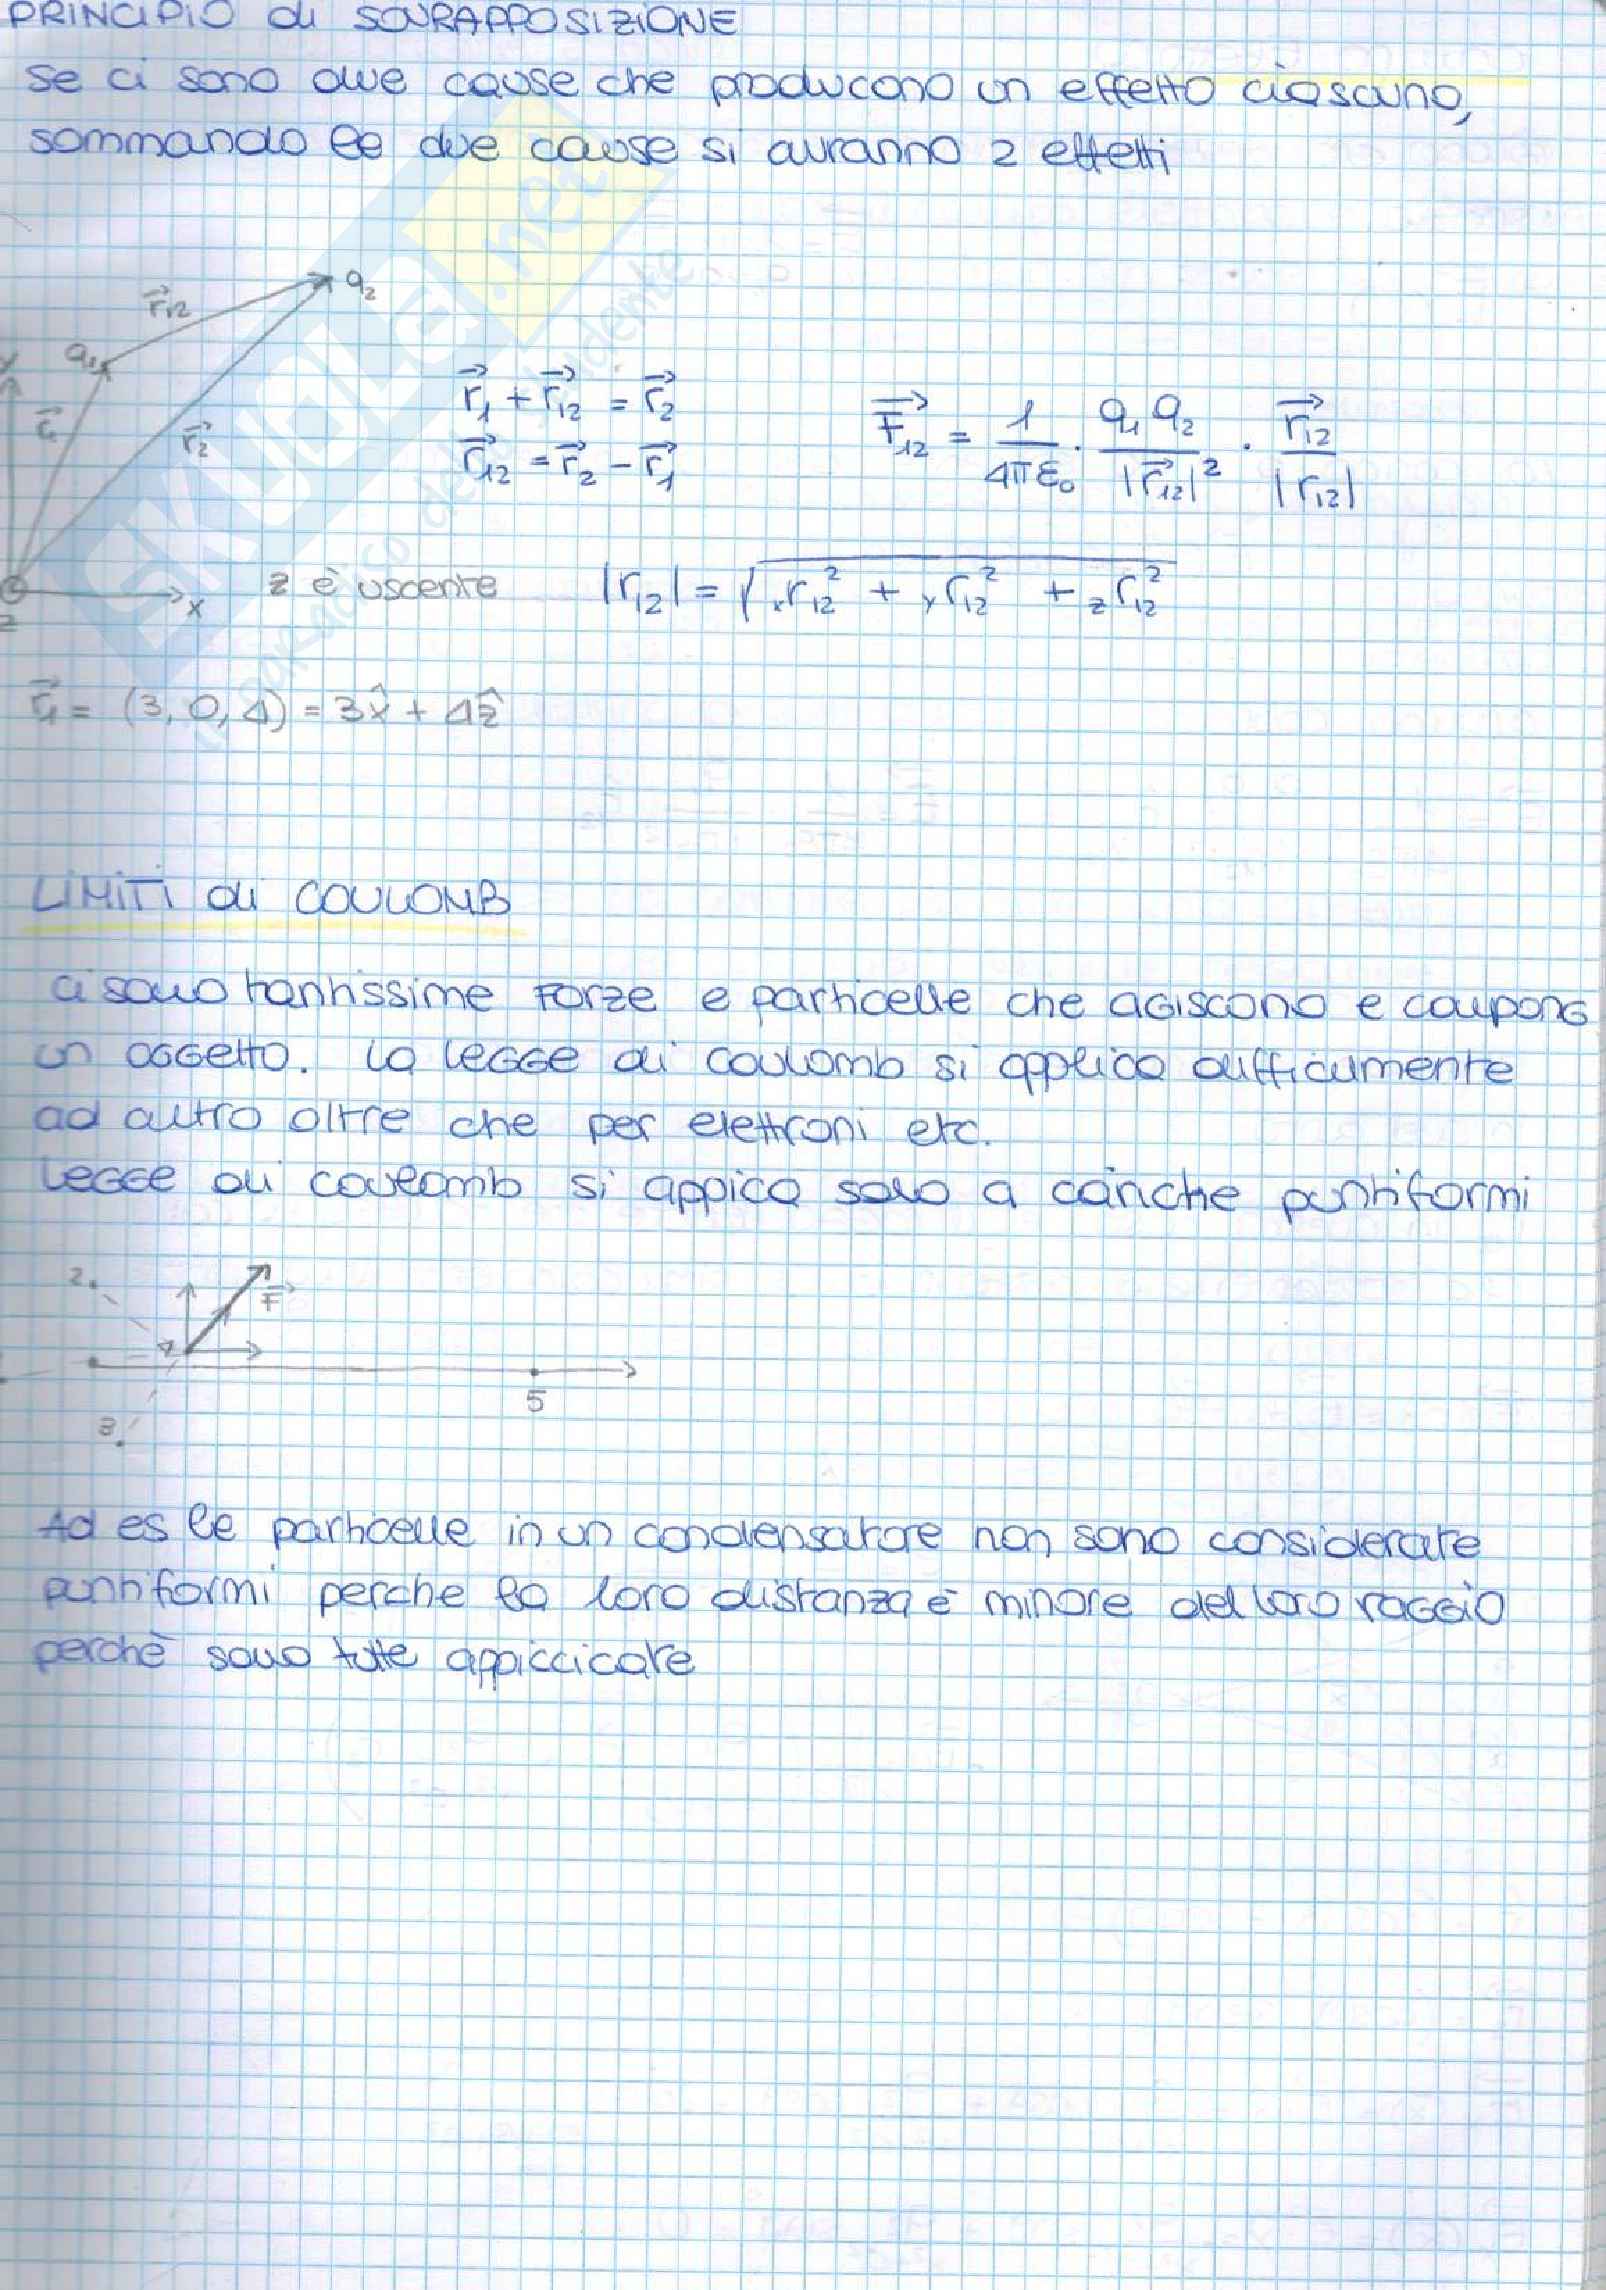 PRINCIPIO di SOVRAPPOSIZIONE
se ci sono due cause che producono un effetto ciascuno,
sommando le due cause si avranno 2 effetti
q₂
r⃗₁₂
q₁
y
r⃗₁
r⃗₂
r⃗₁ + r⃗₁₂ = r⃗₂
r⃗₁₂ = r⃗₂ - r⃗₁
F⃗₁₂ = 1/4πε₀ · q₁ q₂/|r⃗₁₂|² · r⃗₁₂/|r₁₂|
x
z
z è uscente
|r₁₂| = √ₓr₁₂² + ᵧr₁₂² + zr₁₂²
r⃗₁ = (3, 0, 4) = 3x̂ + 4ẑ
LIMITI di COULOMB
ci sono tantissime forze e particelle che agiscono e compong
un oggetto. La legge di coulomb si applica difficilmente
ad altro oltre che per elettroni etc.
Legge di coulomb si appica solo a cariche puntiformi
2.
F⃗
1
5
3.
Ad es le particelle in un condensatore non sono considerate
puntiformi perche la loro distanza è minore del loro raggio
perchè sono tutte appiccicate
SKUOLa.net